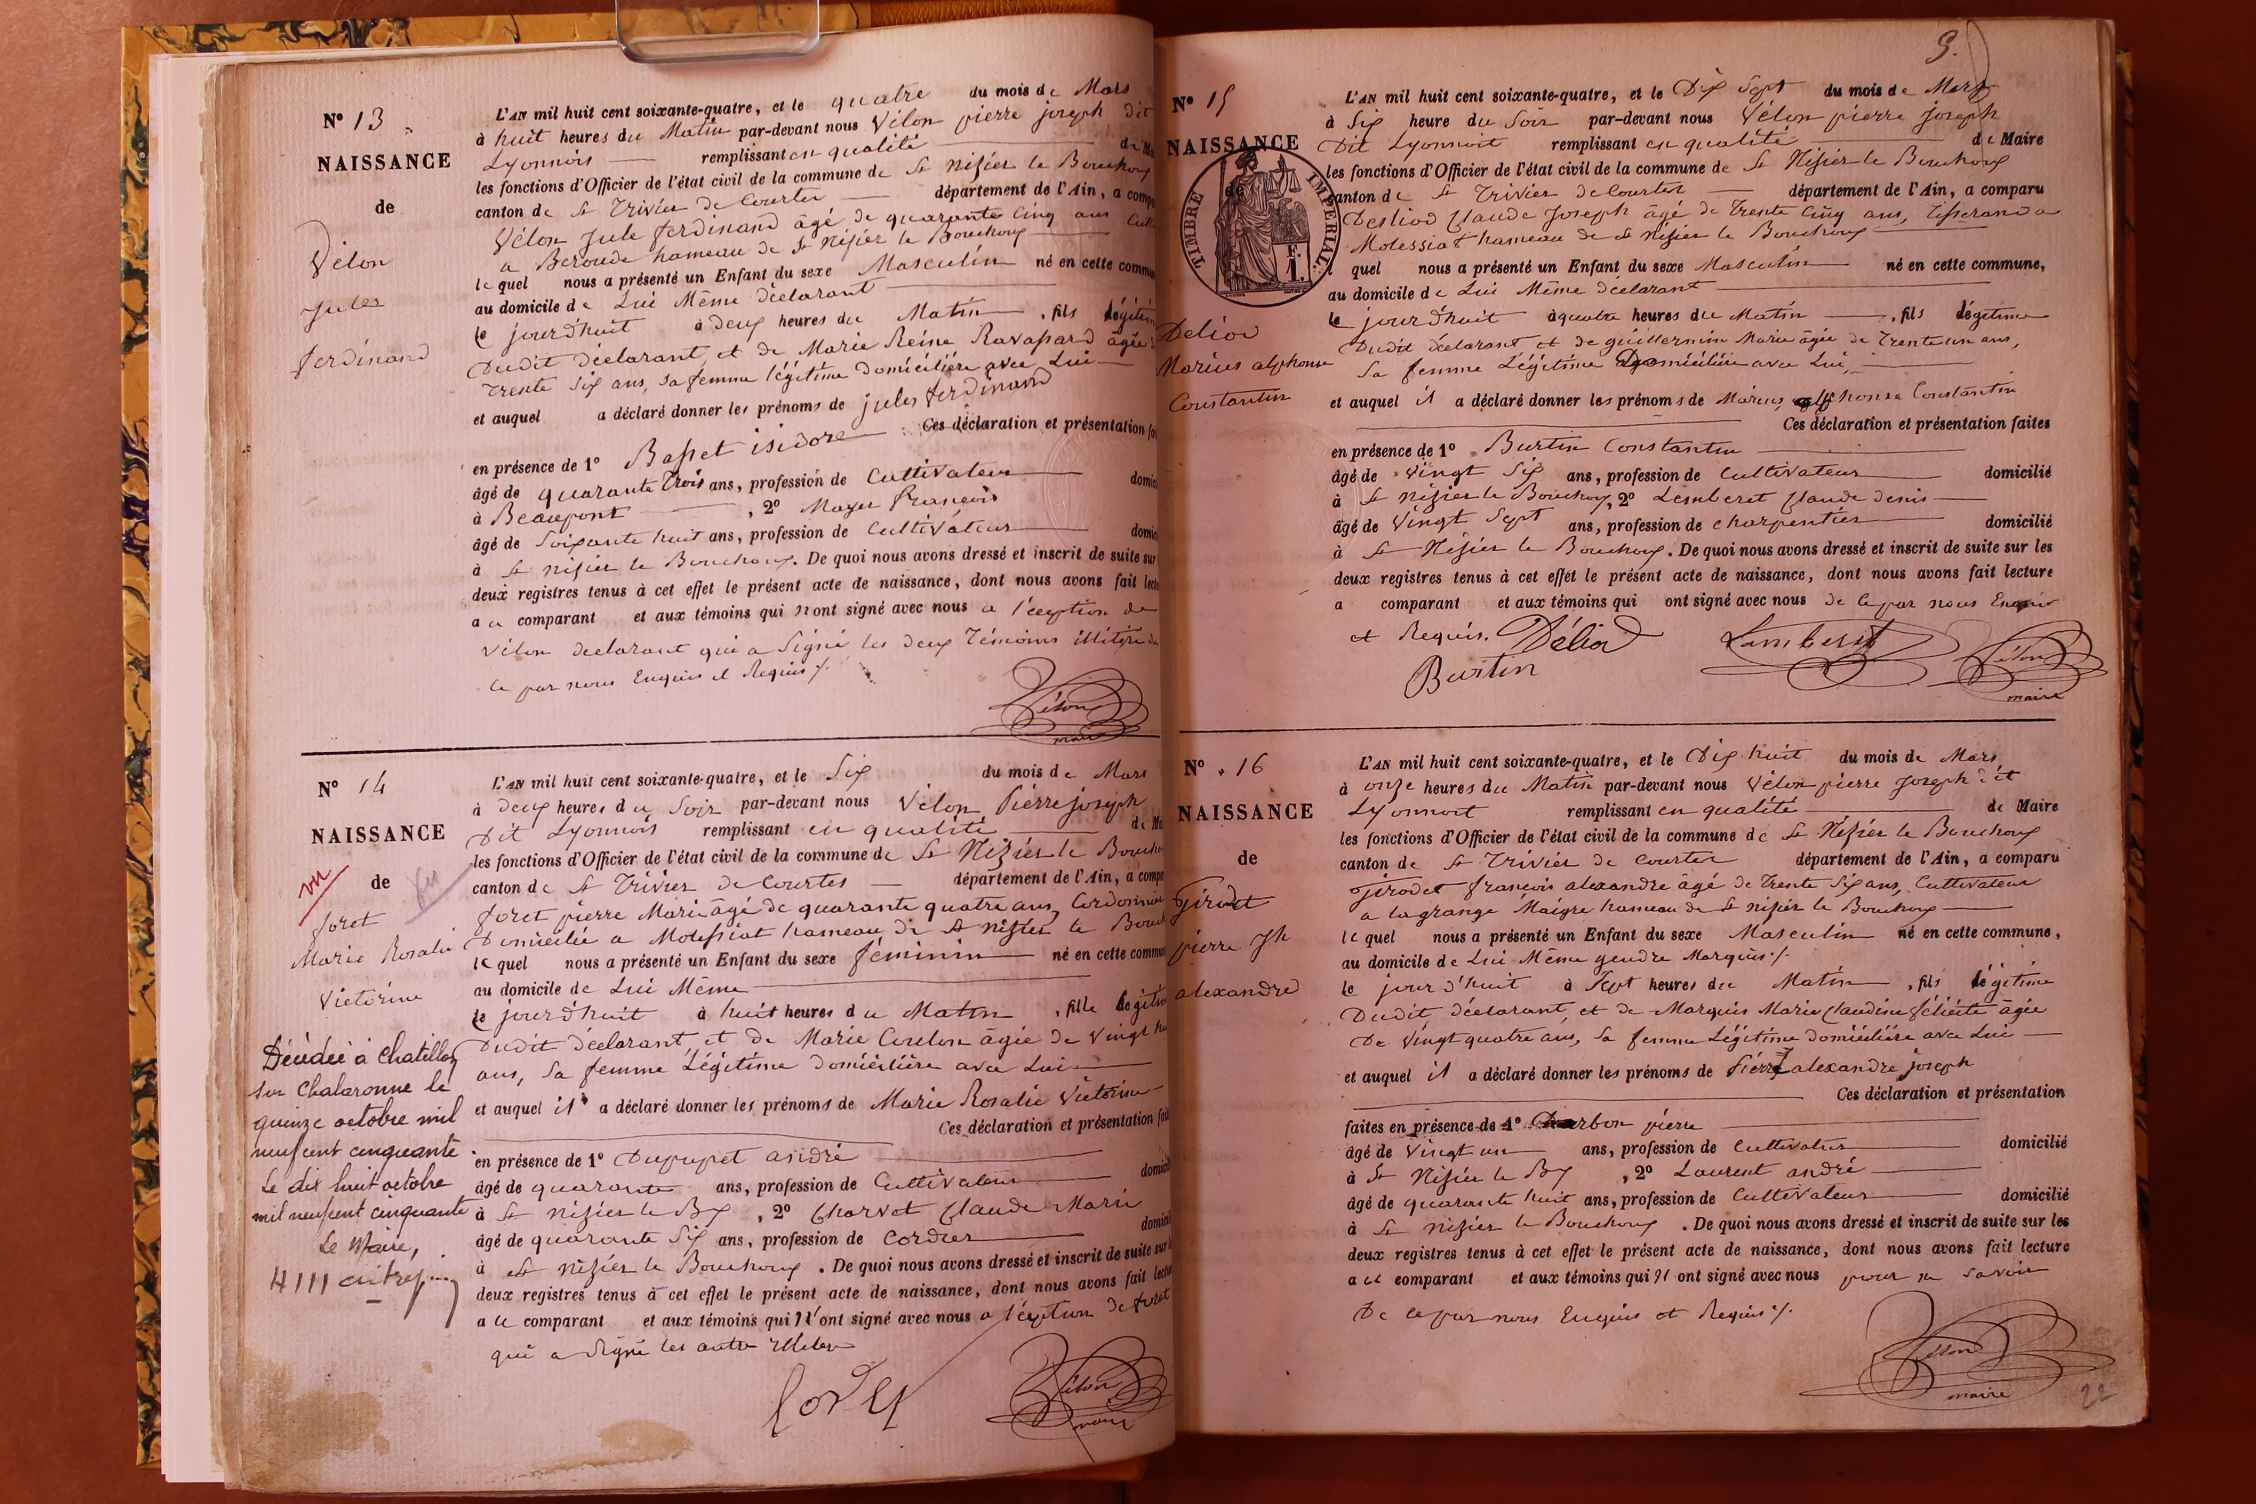 Nº 13
NAISSANCE
de
Vélon
Jules
ferdinand
L'AN mil huit cent soixante-quatre, et le quatre du mois de Mars
à huit heures du Matin par-devant nous Vélon pierre joseph dit
Lyonnois remplissant en qualité de
les fonctions d'Officier de l'état civil de la commune de St Nizier le Bouchoux
canton de St Trivier de Courtes département de l'Ain, a
Vélon Jule ferdinand âgé de quarante Cinq ans
a Beroude hameau de St Nizier le Bouchoux
le quel nous a présenté un Enfant du sexe Masculin né en cette
au domicile de Lui Même déclarant
le jourd'huit à deux heures du Matin , fils
Dudit déclarant, et de Marie Reine Ravassard âgée
Trente Six ans, sa femme légitime domicilière avec Lui
et auquel a déclaré donner les prénoms de jules ferdinand
Ces déclaration et présentation
en présence de 1º Basset isidore
âgé de quarante Trois ans, profession de Cultivateur
à Beaupont , 2º Moyer François
âgé de Soixante huit ans, profession de Cultivateur
à St nizier le Bouchoux. De quoi nous avons dressé et inscrit de suite sur
deux registres tenus à cet effet le présent acte de naissance, dont nous avons fait
a u comparant et aux témoins qui n ont signé avec nous a l'éception de
Vélon declarant qui a Signé les deux Témoins illitéré
ce par nous Enquis et Requis ./.
Vélon
maire
Nº 14
NAISSANCE
vu
de
foret
Marie Rosalie
Victorine
Décédée à Chatillon
sur Chalaronne le
quinze octobre mil
neuf cent cinquante
Le dix huit octobre
mil neuf cent cinquante
Le Maire,
L'AN mil huit cent soixante-quatre, et le Six du mois de Mars
à deux heures du Soir par-devant nous Vélon Pierre joseph
Dit Lyonnois remplissant en qualité de
les fonctions d'Officier de l'état civil de la commune de St Nizier le
canton de St Trivier de Courtes département de l'Ain, a
foret pierre Marie âgé de quarante quatre ans,
Domicilié a Molessiat hameau de St nizier le
le quel nous a présenté un Enfant du sexe féminin né en cette
au domicile de Lui Même
le jourd'huit à huit heures du Matin , fille
Dudit déclarant, et de Marie Curelon âgée de Vingt
ans, Sa femme Légitime domicilière avec Lui
et auquel il a déclaré donner les prénoms de Marie Rosalie Victorine
Ces déclaration et présentation
en présence de 1º Dupupet andré
âgé de quarante ans, profession de Cultivateur
à St nizier le Bx , 2º Charvet Claude Marie
âgé de quarante Six ans, profession de Cordier
à St nizier le Bouchoux . De quoi nous avons dressé et inscrit de suite sur
deux registres tenus à cet effet le présent acte de naissance, dont nous avons fait
a u comparant et aux témoins qui n'ont signé avec nous a l'éception de foret
qui a Signé les autre
Vélon
maire
9.
Nº 15
NAISSANCE
de
TIMBRE IMPERIAL
F. 1.
Deliod
Marius alphonse
Constantin
L'AN mil huit cent soixante-quatre, et le Dix Sept du mois de Mars
à Six heure du Soir par-devant nous Vélon pierre Joseph
Dit Lyonnoit remplissant en qualité de Maire
les fonctions d'Officier de l'état civil de la commune de St Nizier le Bouchoux
canton de St Trivier de Courtes département de l'Ain, a comparu
Desliod Claude Joseph âgé de Trente Cinq ans, Tisserand a
Molessiat hameau de St nizier le Bouchoux
l quel nous a présenté un Enfant du sexe Masculin né en cette commune,
au domicile de Lui Même déclarant
le jourd'huit à quatre heures du Matin , fils légitime
Dudit déclarant et de guillermin Marie âgée de Trente un ans,
Sa femme Légitime Domicilière avec Lui,
et auquel il a déclaré donner les prénoms de Marius alphonse Constantin
Ces déclaration et présentation faites
en présence de 1º Burtin Constantin
âgé de Vingt Six ans, profession de Cultivateur domicilié
à St nizier le Bouchoux, 2º Lemberet Claude denis
âgé de Vingt Sept ans, profession de charpentier domicilié
à St Nizier le Bouchoux. De quoi nous avons dressé et inscrit de suite sur les
deux registres tenus à cet effet le présent acte de naissance, dont nous avons fait lecture
a comparant et aux témoins qui ont signé avec nous de ce par nous Enquis
et Requis. Déliod Lamberet Vélon
Burtin maire
Nº 16
NAISSANCE
de
Girodet
pierre Jh
alexandre
L'AN mil huit cent soixante-quatre, et le Dix huit du mois de Mars
à onze heures du Matin par-devant nous Vélon pierre Joseph dit
Lyonnoit remplissant en qualité de Maire
les fonctions d'Officier de l'état civil de la commune de St Nizier le Bouchoux
canton de St Trivier de Courtes département de l'Ain, a comparu
Girodet françois alexandre âgé de Trente Six ans, Cultivateur
a la grange Maigre hameau de St nizier le Bouchoux
le quel nous a présenté un Enfant du sexe Masculin né en cette commune,
au domicile de Lui Même gendre Marquis ./.
le jour d'huit à Sept heures du Matin , fils légitime
Dudit déclarant, et de Marquis Marie Claudine félicité âgée
De Vingt quatre ans, Sa femme Légitime domicilière avec Lui
et auquel il a déclaré donner les prénoms de Pierre alexandre joseph
Ces déclaration et présentation
faites en présence de 1º Charbon pierre
âgé de Vingt un ans, profession de Cultivateur domicilié
à St Nizier le Bx , 2º Laurent andré
âgé de quarante huit ans, profession de Cultivateur domicilié
à St nizier le Bouchoux . De quoi nous avons dressé et inscrit de suite sur les
deux registres tenus à cet effet le présent acte de naissance, dont nous avons fait lecture
a u comparant et aux témoins qui n ont signé avec nous pour ne Savoir
De ce par nous Enquis et Requis ./.
Vélon
maire
22